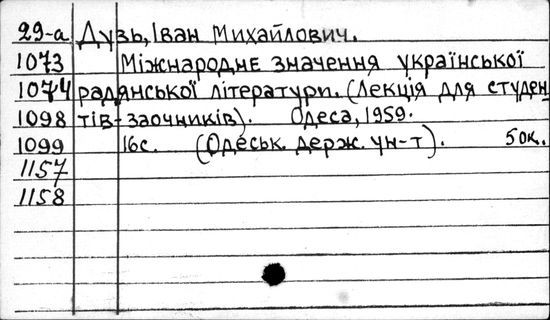 29-а Дузь, Іван Михайлович.
1073 Міжнародне значення української
1074 радянської літератури. (Лекція для студен
1098 тів-заочників). Одеса, 1959.
1099 16с. (Одеськ. держ. ун-т). 5 ок.
1157
1158